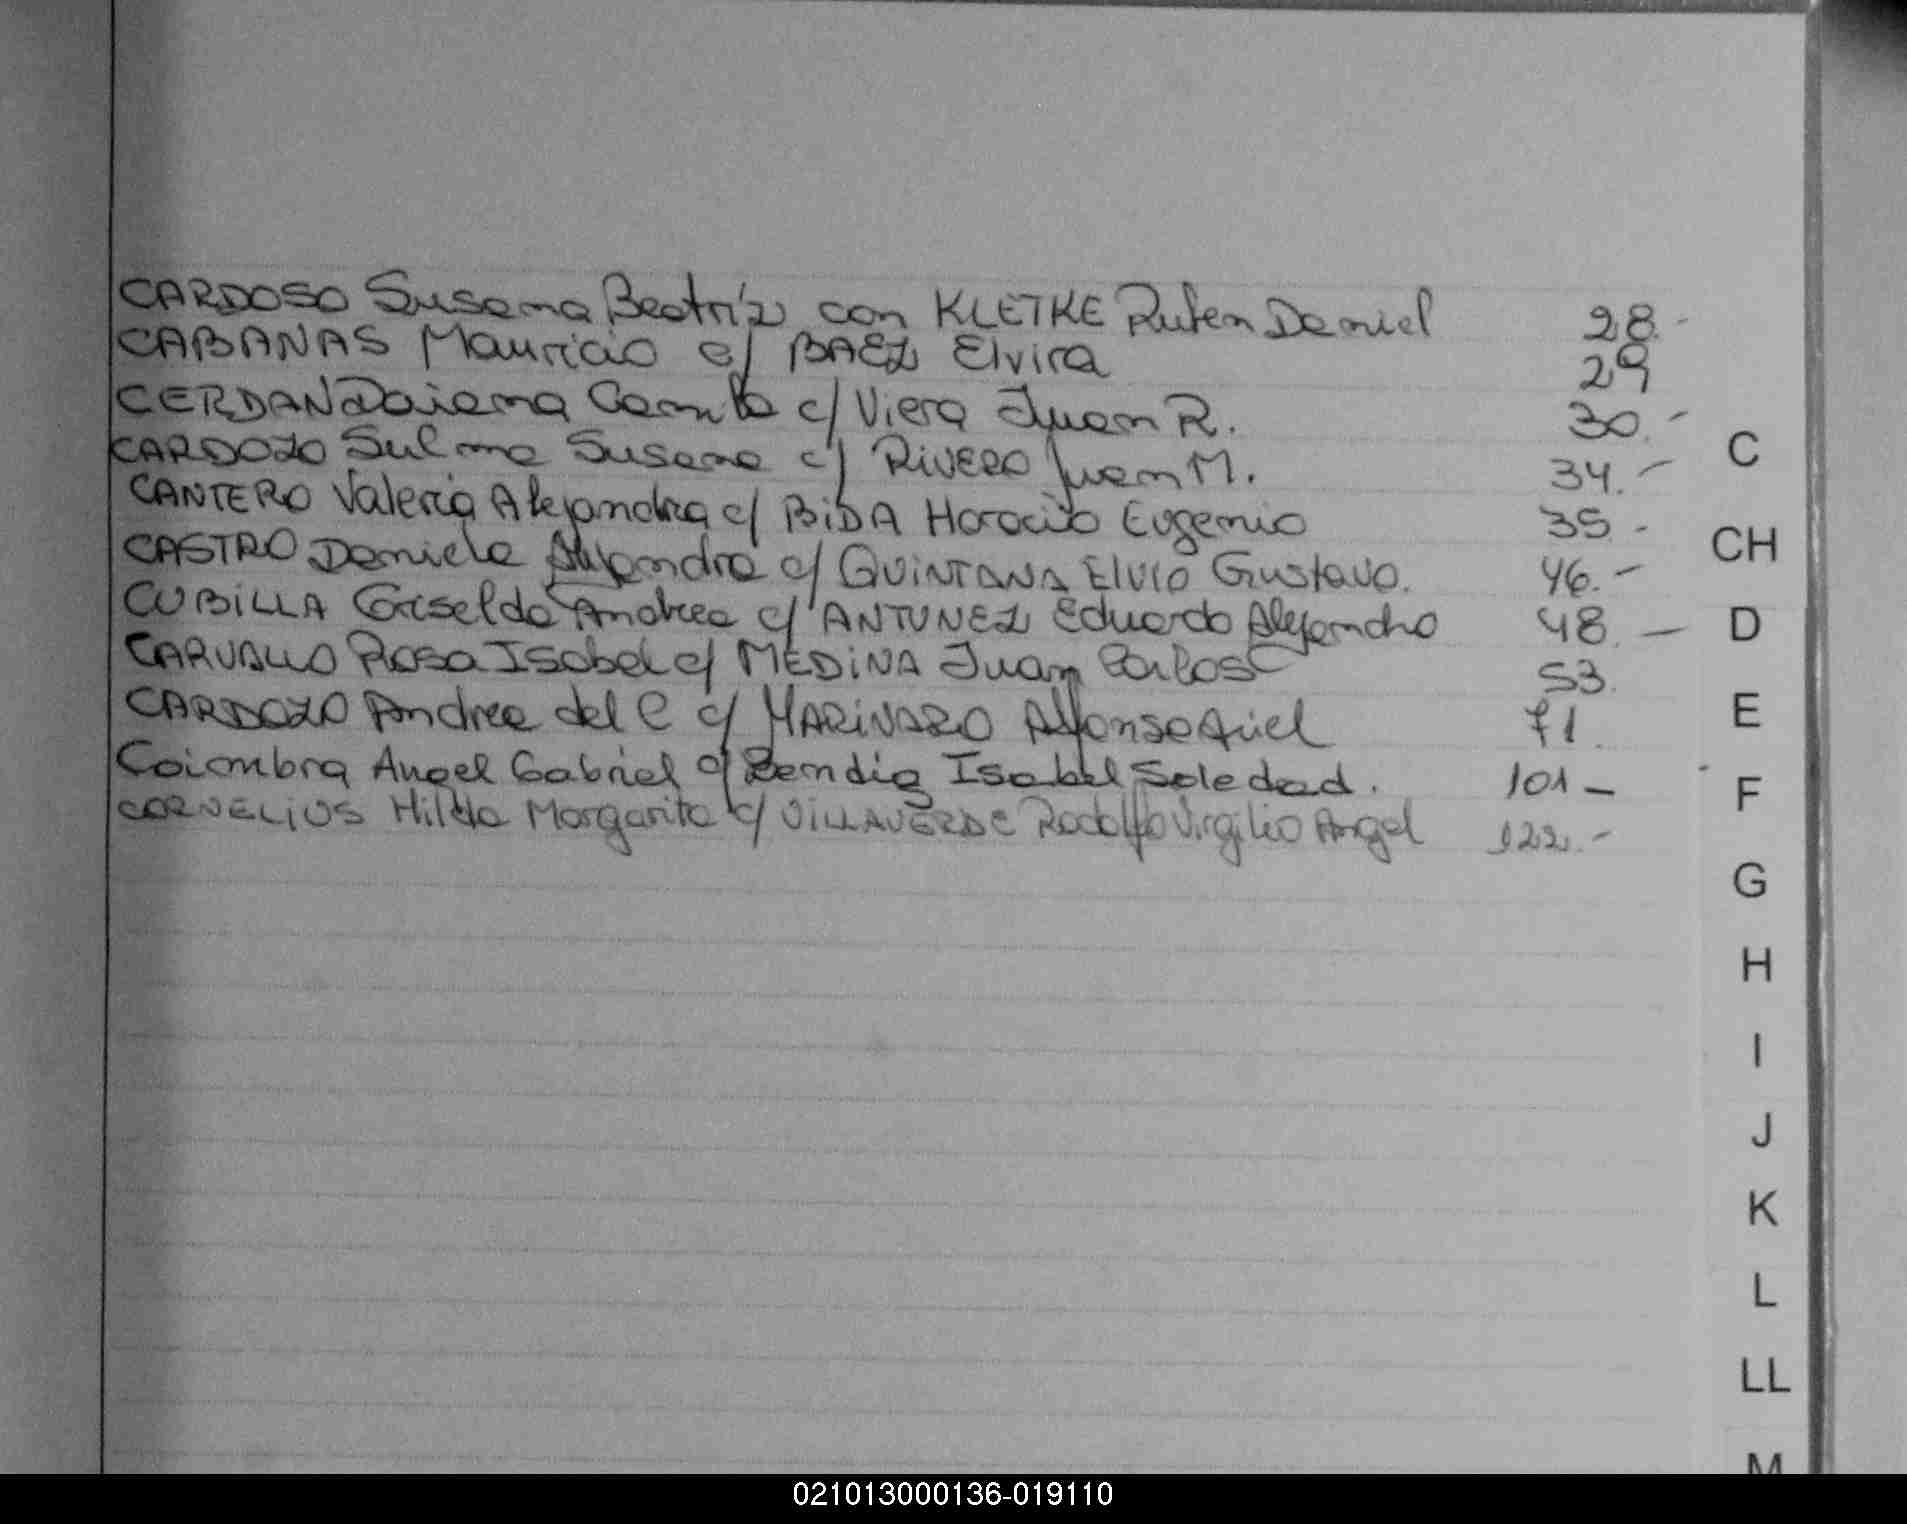 CARDOSO Susana Beatríz con KLETKE Ruben Daniel 28.-
CABANAS Mauricio c/ BAEZ Elvira 29
CERDAN Daiana Camila c/ Viera Juan R. 30.-
CARDOZO Sulma Susana c/ RIVERO Juan M. 34.-
CANTERO Valeria Alejandra c/ BIDA Horacio Eugenio 35.-
CASTRO Daniela Alejandra c/ QUINTANA Elvio Gustavo. 46.-
CUBILLA Griselda Andrea c/ ANTUNEZ Eduardo Alejandro 48.-
CARVALLO Rosa Isabel c/ MEDINA Juan Carlos 53.
CARDOZO Andrea del C c/ MARINARO Alfonso Ariel 71.
Coimbra Angel Gabriel c/ Isabel Soledad. 101-
CORNELIUS Hilda Margarita c/ VILLAVERDE Rodolfo Virgilio Angel 122.-
C
CH
D
E
F
G
H
I
J
K
L
LL
M
021013000136-019110